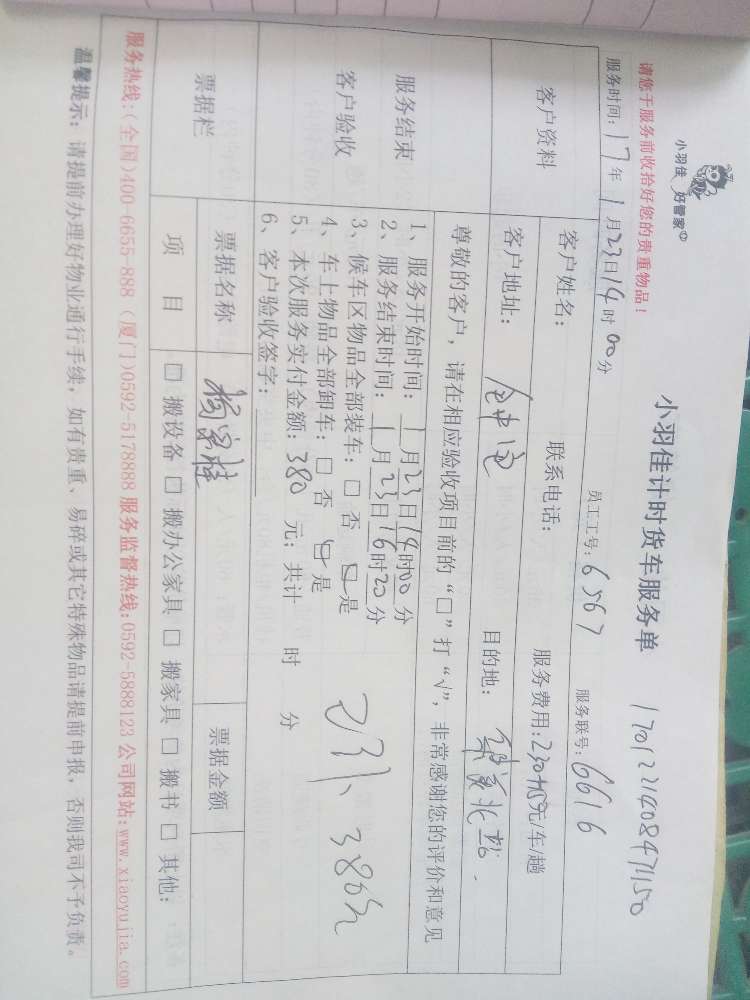 小羽佳 好管家
小羽佳计时货车服务单
请您于服务前收拾好您的贵重物品！
服务时间：17年1月23日14时00分 员工工号：6567 服务联号：6616
客户资料
客户姓名： 联系电话： 服务费用：元/车/趟
客户地址： 目的地：
尊敬的客户，请在相应验收项目前的“□”打“√”，非常感谢您的评价和意见
服务结束
客户验收
1、服务开始时间：1月23日14时00分
2、服务结束时间：1月23日16时20分
3、候车区物品全部装车：□ 否 □是
4、车上物品全部卸车：□ 否 □是
5、本次服务实付金额：380 元；共计 时 分
6、客户验收签字：
票据栏
票据名称 票据金额
项 目 □ 搬设备 □ 搬办公家具 □ 搬家具 □ 搬书 □ 其他：
服务热线：(全国)400-6655-888 (厦门)0592-5178888 服务监督热线：0592-5888123 公司网站：www.xiaoyujia.com
温馨提示：请提前办理好物业通行手续，如有贵重、易碎或其它特殊物品请提前申报，否则我司不予负责。